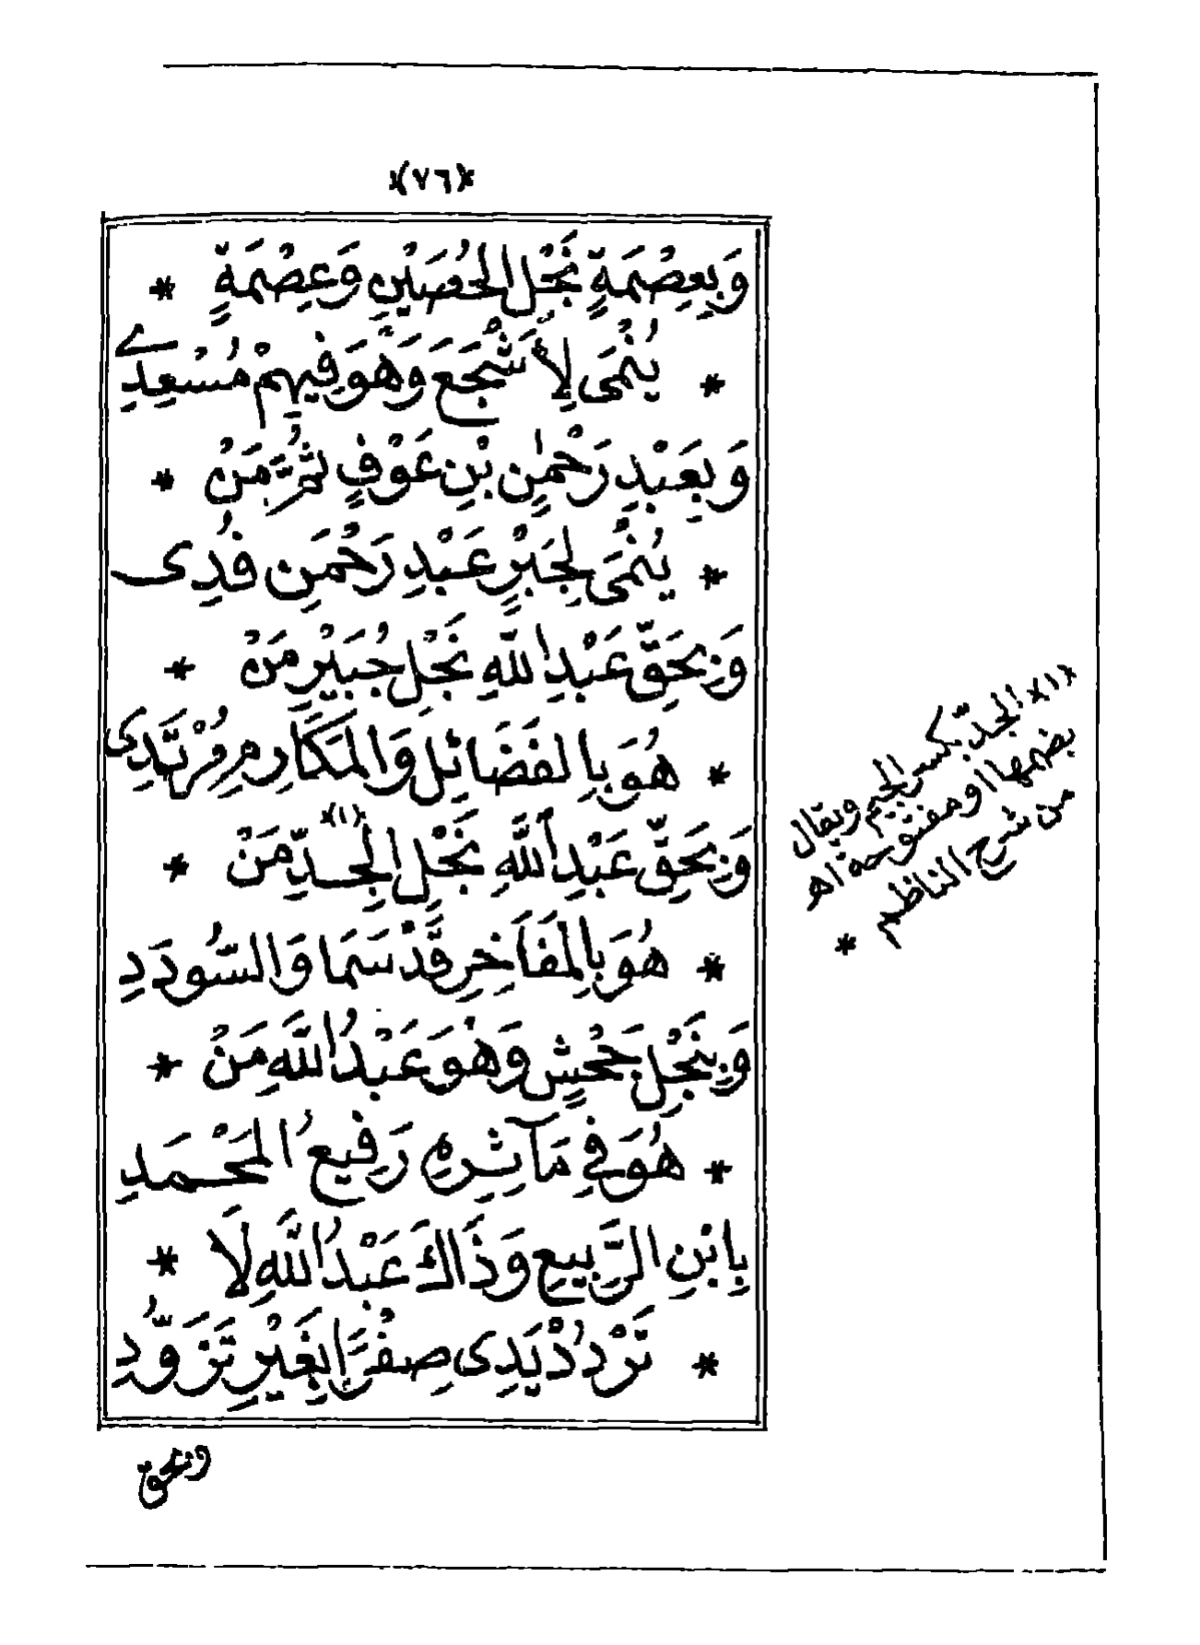 *(٧٦)*
وَبِعِصْمَةٍ نَجْلِ الحُصَيْنِ وَعِصْمَةٍ *
* يُنْمَى لِأَشْجَعَ وَهْوَ فِيهِمْ مُسْعِدِي
وَبِعَبْدِ رَحْمٰنِ بْنِ عَوْفٍ ثُمَّ مَنْ *
* يُنْمَى لِجَبْرٍ عَبْدِ رَحْمَنِ فُدِى
وَبِحَقِّ عَبْدِ اللّٰهِ نَجْلِ جُبَيْرٍ مَنْ *
* هُوَ بِالفَضَائِلِ وَالمَكَارِمِ مُرْتَدِى
وَبِحَقِّ عَبْدِ اللَّهِ نَجْلِ الجِدِّ (١) مَنْ *
* هُوَ بِالمَفَاخِرِ قَدْ سَمَا وَالسُّودَدِ
وَبِنَجْلِ جَحْشٍ وَهْوَ عَبْدُ اللَّهِ مَنْ *
* هُوَ فِي مَآثِرِهِ رَفِيعُ المَحْمَدِ
بِابْنِ الرَّبِيعِ وَذَاكَ عَبْدُ اللَّهِ لَا *
* تَرْدُدْ يَدِى صِفْرًا بِغَيْرِ تَزَوُّدِ
وبحق
*(١)* الجدّ بكسر الجيم ويقال
بضمها او مفتوحة اھ
من شرح الناظم
*